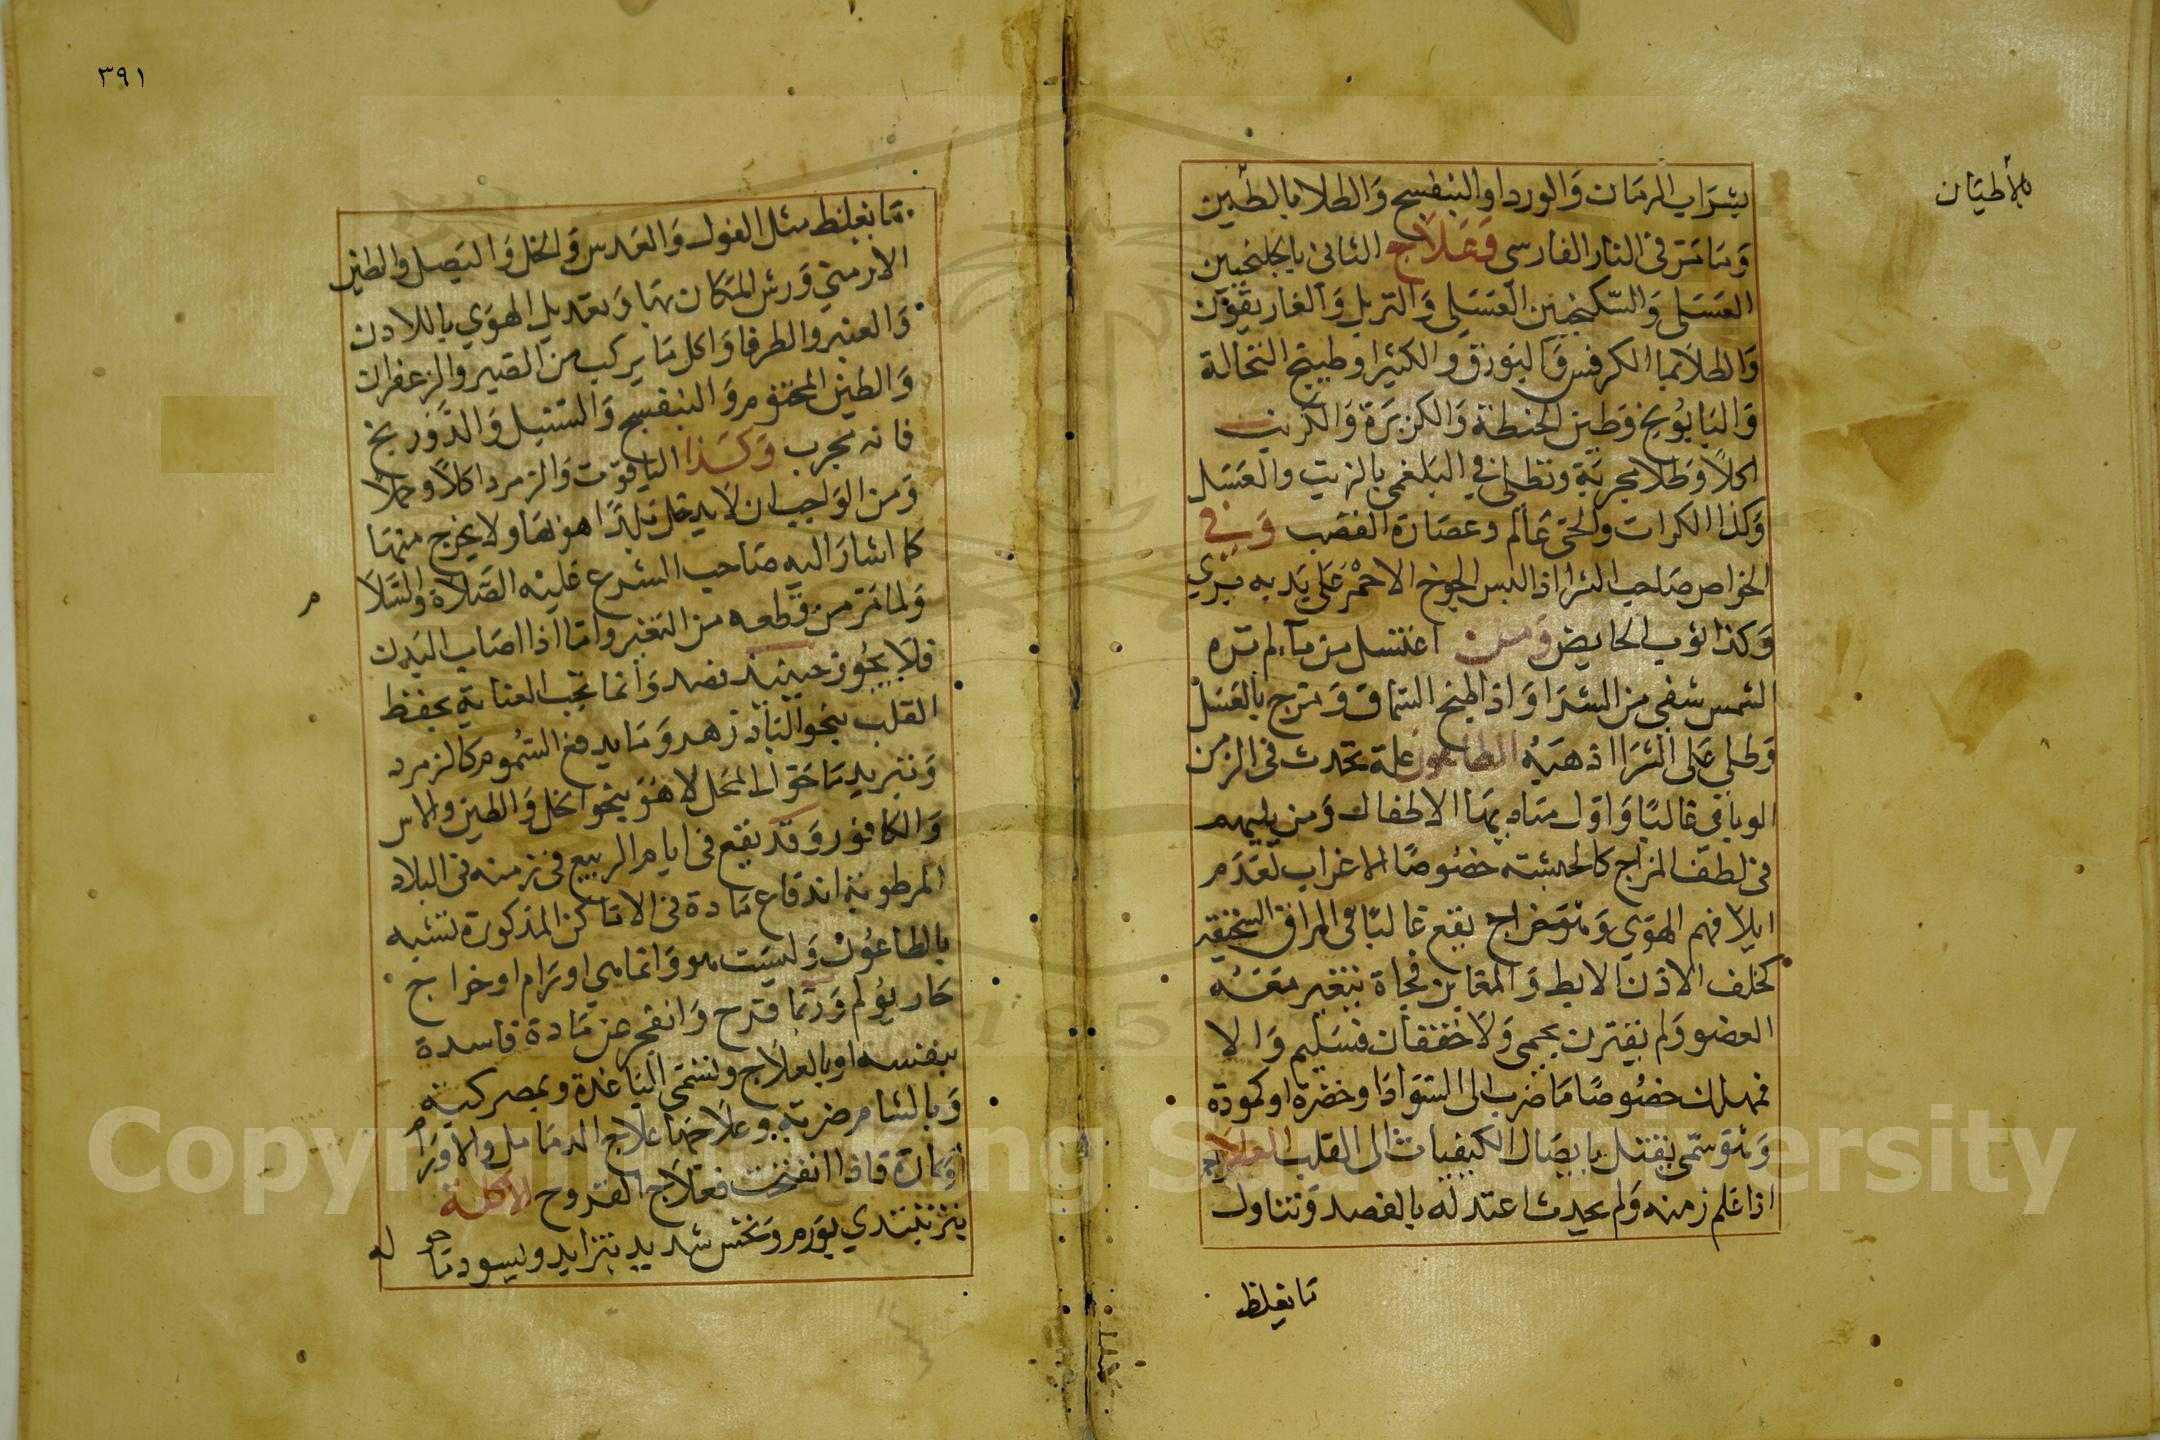 بشراب الرمان والورد او البنفسج والطلا بالطين
بالاطيان
وما مر في النار الفارسي فعلاج الثاني بالجلنجبين
العسلي والسكنجبين العسلي والتربل والغاريقون
والطلا بما الكرفس والبورق والكثيرا وطبيخ النخالة
والبابونج وطين الحنطة والكزبرة والكرنب
اكلا وطلا مجربة ونطلى في البلغمى بالزيت والعسل
وكذا الكراث والحي عالم وعصارة القصب وفي
الخواص صاحب الشرا اذا لبس الجوخ الاحمر على يديه بري
وكذا ثوب الحايض ومن اغتسل من ماء لم تره
الشمس شفى من الشرا واذا طبخ السماق ومزج بالعسل
وطلي على الشرا اذهبه الطاعون علة تحدث في الزمن
الوباي غالبا واول مناه بها الاطفال ومن يليهم
في لطف المزاج كالحبشة خصوصا الاغراب لعدم
ايلافهم الهوي وهو خراج يقع غالبا في المراق السخيفة
كخلف الاذن الابط والمغابن فجاة يتغير معه
العضو ولم يقترن بحمى ولا خفقان فسليم والا
فمهلك خصوصا ما ضرب الى السواد او خضرة او كمودة
وهو سمى يقتل بايصال الكيفيات الى القلب العلاج
اذا علم زمنه ولم يحدث اعتد له بالفصد وتناول
ما يغلظ
٣٩١
ما يغلظ مثل الفول والعدس والخل والبصل والطين
الارمني ورش المكان بها وتعديل الهوي باللادن
والعنبر والطرفا واكل ما يركب من الصبر والزعفران
والطين المختوم والبنفسج والسنبل والدرونج
فانه مجرب وكذا الياقوت والزمرد اكلا وحملا
ومن الواجب ان لا يدخل بلدا هو بها ولا يخرج منها
كما اشار اليه صاحب الشرع عليه الصلاة والسلام
ولما مر من قطعه من التغير واما اذا اصاب البدن
فلا يجوز حينيذ فصد وانما تجب العناية بحفظ
القلب بنحو الباد زهر وما يدفع السموم كالزمرد
وتبريد ما حول المحل لا هو بنحو الخل والطين والاس
والكافور وقد يقع في ايام الربيع في زمنه في البلاد
المرطوبة اندفاع مادة في الاماكن المذكورة تشبه
بالطاعون وليست هو وانما هي اورام او خراج
حار يؤلم وربما قرح وانفجر عن مادة فاسدة
بنفسه او بالعلاج وتسمى الباغدة وبمصر كبة
وبالشام ضربة وعلاجها علاج الدمامل والاورام
الحارة فاذا انفتحت فعلاج القروح الاكلة
بثر تبتدي بورم ونخس شديد يتزايد ويسود ما حوله